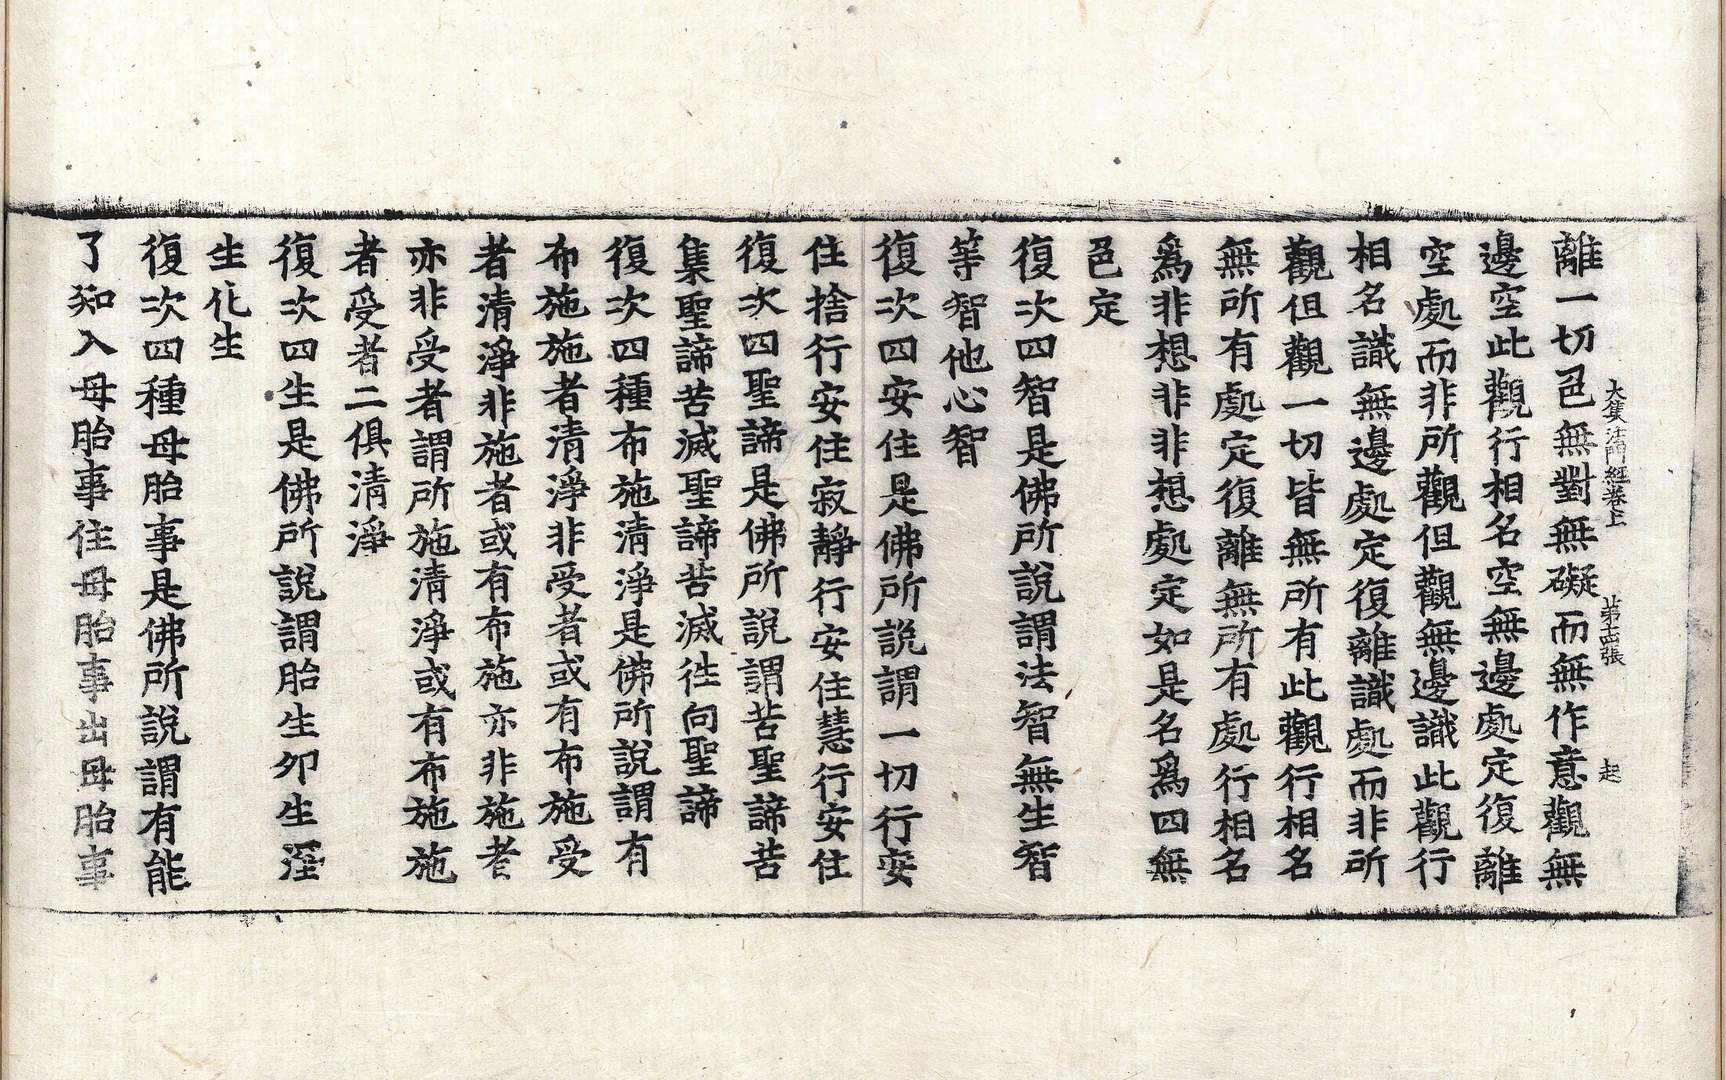 大集法門經卷上 第十二張 起
離一切色無對無礙而無作意觀無
邊空此觀行相名空無邊處定復離
空處而非所觀但觀無邊識此觀行
相名識無邊處定復離識處而非所
觀但觀一切皆無所有此觀行相名
無所有處定復離無所有處行相名
爲非想非非想處定如是名爲四無
色定
復次四智是佛所說謂法智無生智
等智他心智
復次四安住是佛所說謂一切行安
住捨行安住寂靜行安住慧行安住
復次四聖諦是佛所說謂苦聖諦苦
集聖諦苦滅聖諦苦滅徃向聖諦
復次四種布施清淨是佛所說謂有
布施施者清淨非受者或有布施受
者清淨非施者或有布施亦非施者
亦非受者謂所施清淨或有布施施
者受者二俱清淨
復次四生是佛所說謂胎生卵生溼
生化生
復次四種母胎事是佛所說謂有能
了知入母胎事住母胎事出母胎事